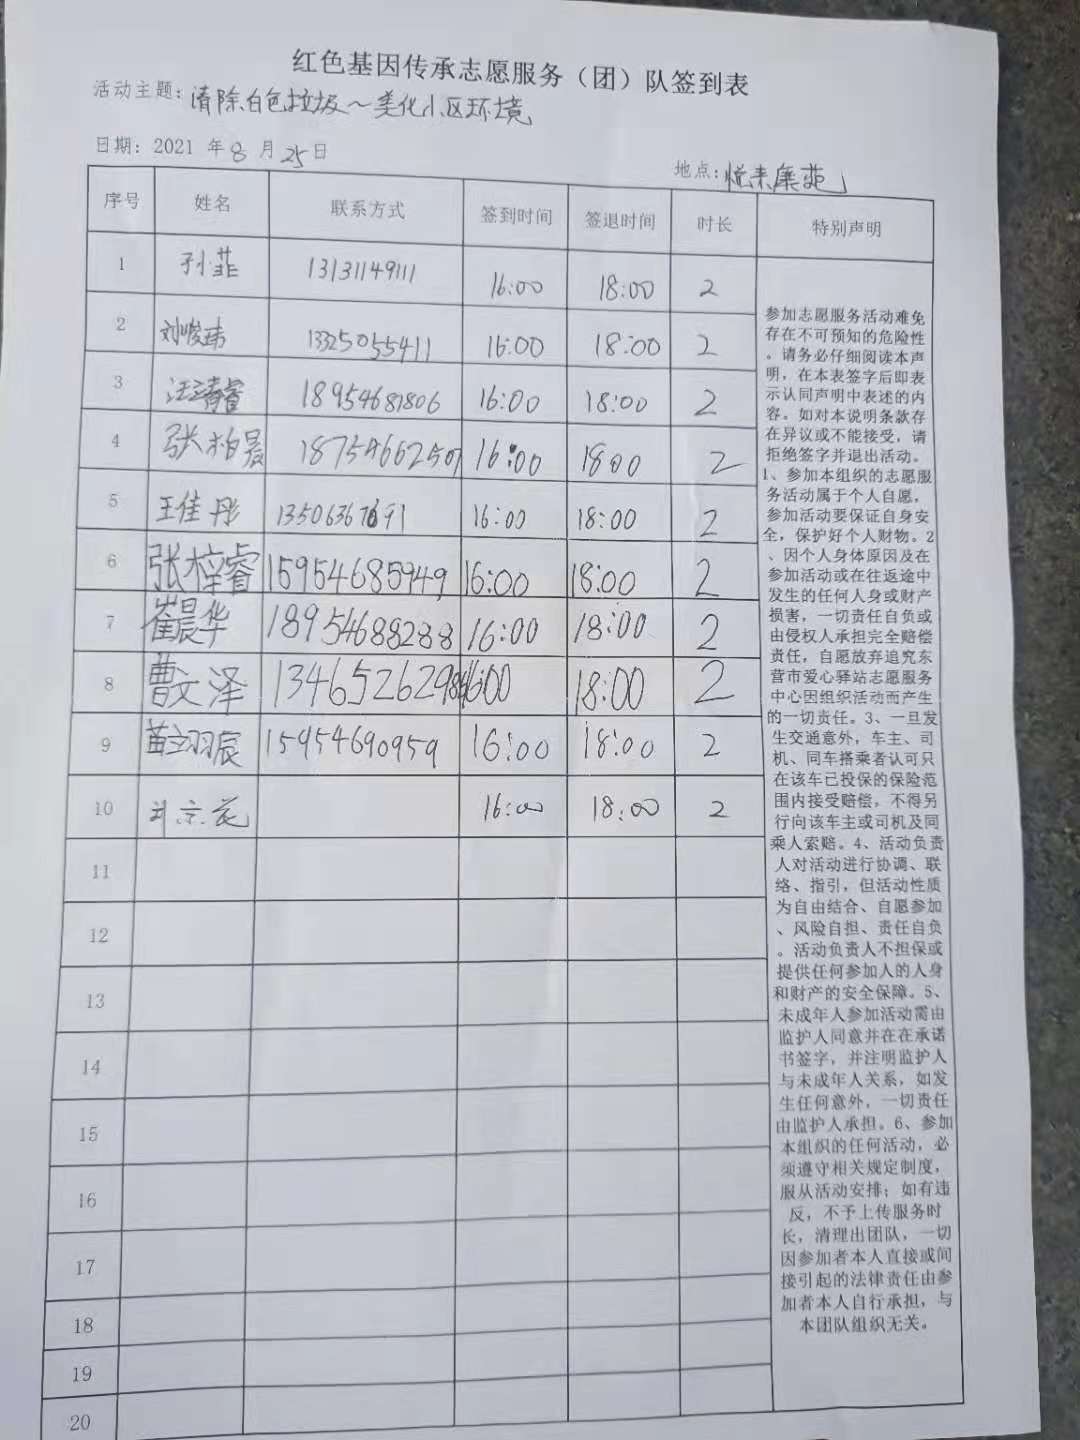 红色基因传承志愿服务（团）队签到表
活动主题：清除白色垃圾～美化小区环境
日期：2021 年 8 月 25 日
地点：悦来康苑
序号 姓名 联系方式 签到时间 签退时间 时长 特别声明
1 孙菲 13131149111 16:00 18:00 2
2 刘峻玮 13325055411 16:00 18:00 2
3 汪清睿 18954681806 16:00 18:00 2
4 张柏晨 18754662507 16:00 1800 2
5 王佳彤 16:00 18:00 2
6 张梓睿 15954685949 16:00 18:00 2
7 崔晨华 18954688288 16:00 18:00 2
8 曹文泽 16:00 18:00 2
9 苗翊辰 15954690959 16:00 18:00 2
10 16:00 18:00 2
11
12
13
14
15
16
17
18
19
20
参加志愿服务活动难免
存在不可预知的危险性
。请务必仔细阅读本声
明，在本表签字后即表
示认同声明中表述的内
容。如对本说明条款存
在异议或不能接受，请
拒绝签字并退出活动。
1、参加本组织的志愿服
务活动属于个人自愿，
参加活动要保证自身安
全，保护好个人财物。2
、因个人身体原因及在
参加活动或在往返途中
发生的任何人身或财产
损害，一切责任自负或
由侵权人承担完全赔偿
责任，自愿放弃追究东
营市爱心驿站志愿服务
中心因组织活动而产生
的一切责任。3、一旦发
生交通意外，车主、司
机、同车搭乘者认可只
在该车已投保的保险范
围内接受赔偿，不得另
行向该车主或司机及同
乘人索赔。4、活动负责
人对活动进行协调、联
络、指引，但活动性质
为自由结合、自愿参加
、风险自担、责任自负
。活动负责人不担保或
提供任何参加人的人身
和财产的安全保障。5、
未成年人参加活动需由
监护人同意并在在承诺
书签字，并注明监护人
与未成年人关系，如发
生任何意外，一切责任
由监护人承担。6、参加
本组织的任何活动，必
须遵守相关规定制度，
服从活动安排；如有违
反，不予上传服务时
长，清理出团队，一切
因参加者本人直接或间
接引起的法律责任由参
加者本人自行承担，与
本团队组织无关。